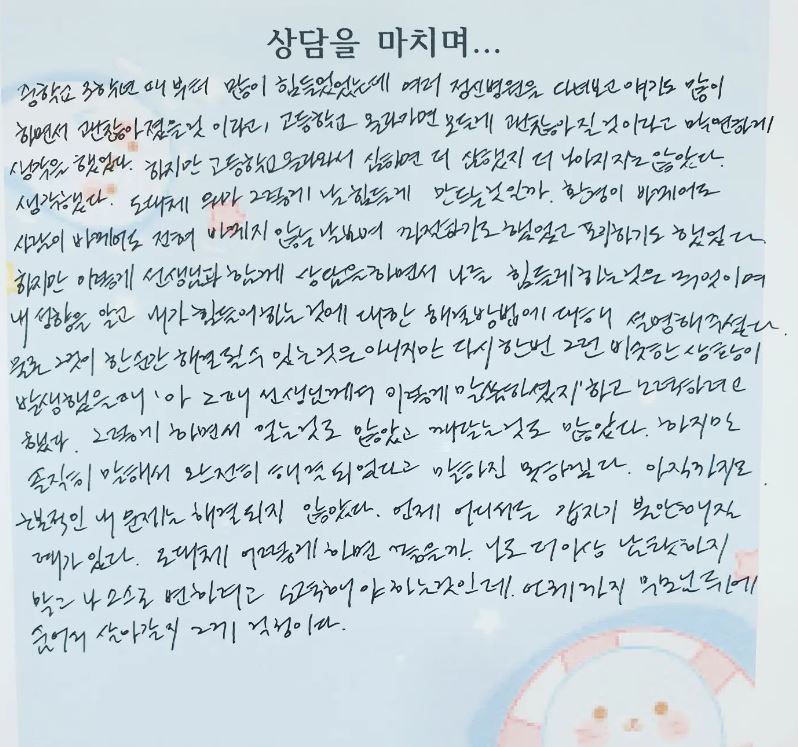 상담을 마치며...
중학교 3학년 때 부터 많이 힘들었었는데 여러 정신병원을 다녀보고 얘기도 많이
하면서 괜찮아졌을것 이라고, 고등학교 올라가면 모든게 괜찮아 질 것이라고 막연하게
생각을 했었다. 하지만 고등학교 올라와서 심하면 더 심했지 더 나아지지는 않았다.
생각했다. 도대체 뭐가 그렇게 날 힘들게 만드는것인가. 환경이 바뀌어도
사람이 바뀌어도 전혀 바뀌지 않는 날 보며 좌절하기도 했었고 포기하기도 했었다.
하지만 이렇게 선생님과 함께 상담을 하면서 나를 힘들게 하는것은 무엇이며
내 성향을 알고 내가 힘들어하는 것에 대한 해결방법에 대해 설명해주셨다.
물론 그것이 한순간 해결될 수 있는것은 아니지만 다시 한번 그런 비슷한 상황이
발생했을때 '아 그때 선생님께서 이렇게 말씀하셨지' 하고 노력하려고
했다. 그렇게 하면서 얻는것도 많았고 깨닫는것도 많았다. 하지만
솔직히 말해서 완전히 해결되었다고 말하진 못하겠다. 아직까지도
근본적인 내 문제는 해결되지 않았다. 언제 어디서든 갑자기 불안해질
때가 있다. 도대체 어떻게 하면 좋을까. 나도 더이상 남탓하지
말고 나 스스로 변하려고 노력해야 하는것인데. 언제까지 부모님 뒤에
숨어서 살아갈지 그게 걱정이다.